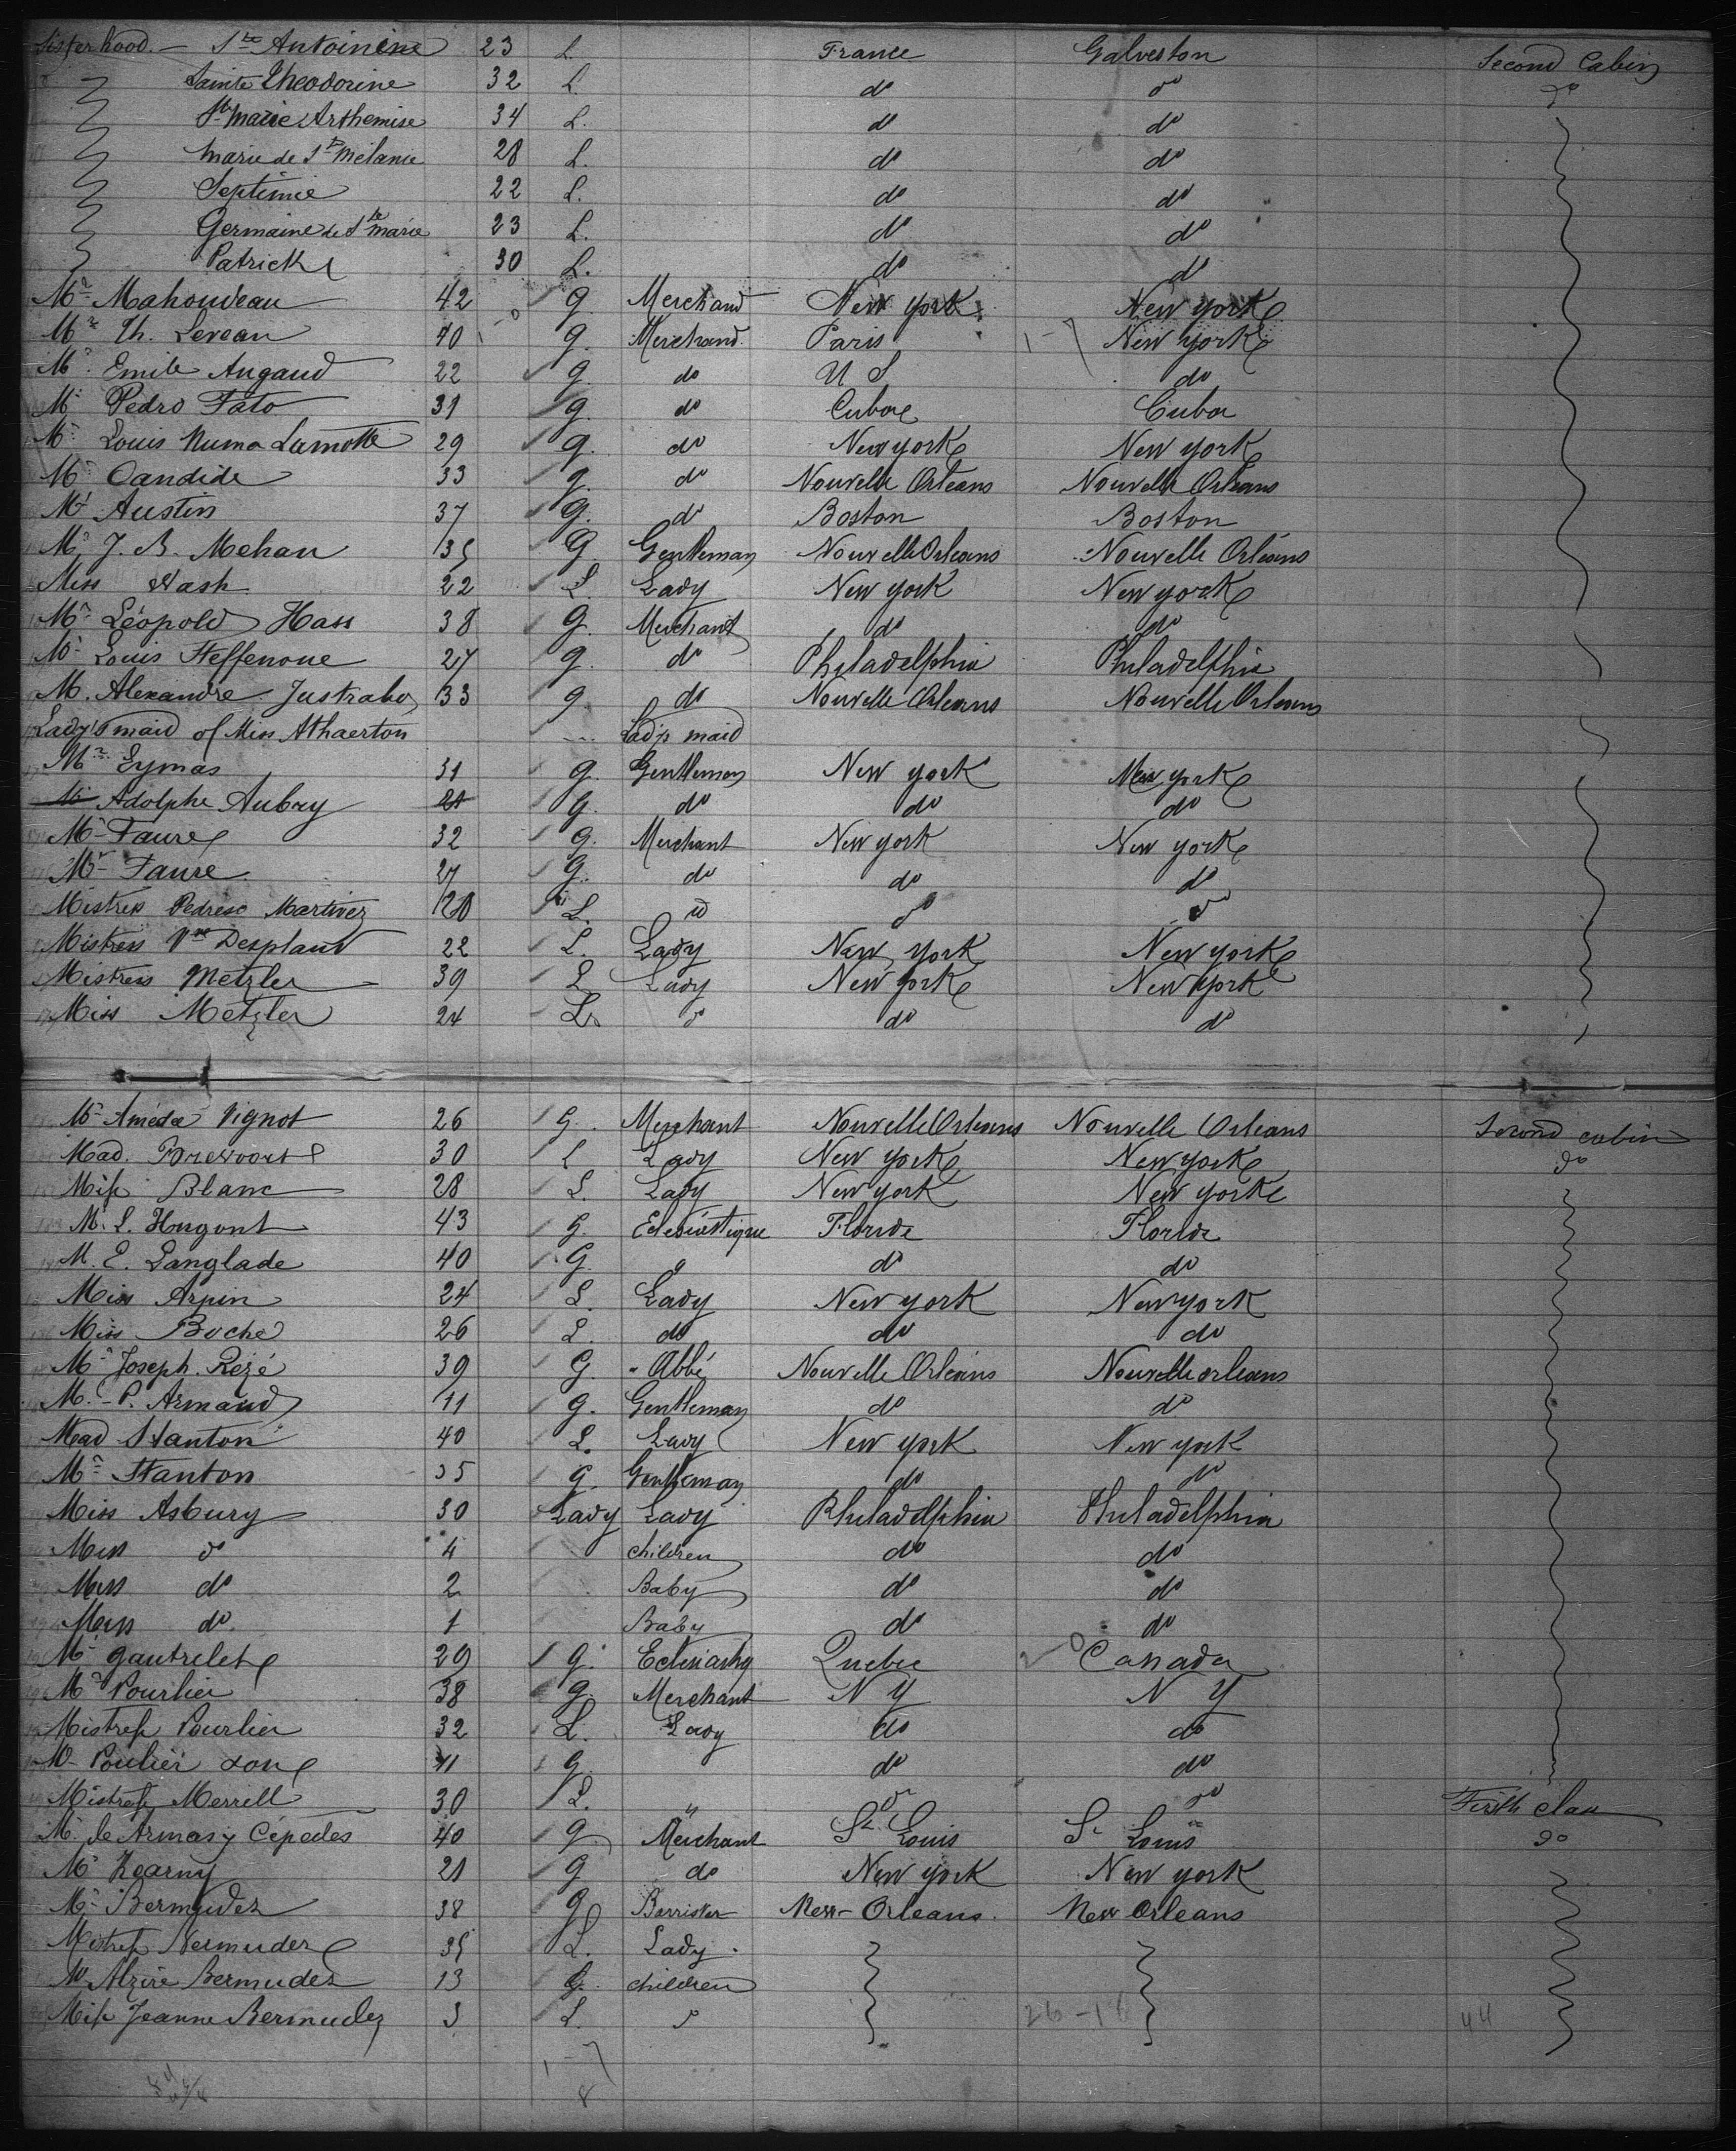 Sisterhood. — Ste Antoinine 23 L. France Galveston Second Cabin
Sainte Theodorine 32 L. do do do
Ste Marie Arthemise 34 L. do do
Marie de Ste Mélanie 28 L. do do
Septimie 22 L. do do
Germaine de Ste Marie 23 L. do do
Patrick 30 L. do do
Mr Mahoudeau 42 G. Merchand New York New York
Mr Th. Leveau 40 G. Merchand Paris New York
Mr Emile Augaud 22 G. do U S do
Mr Pedro Fato 31 G. do Cuba Cuba
Mr Louis Numa Lamotte 29 G. do New York New York
Mr Candide 33 G. do Nouvelle Orleans Nouvelle Orleans
Mr Austin 37 G. do Boston Boston
Mr J. B. Mehan 35 G Gentleman Nouvelle Orleans Nouvelle Orléans
Miss Wash 22 L. Lady New York New York
Mr Léopold Hass 38 G. Merchant do do
Mr Louis Steffenoue 27 G. do Philadelphia Philadelphia
M. Alexandre Justrabo 33 G do Nouvelle Orleans Nouvelle Orleans
Lady's maid of Miss Athaerton Lady's maid
Mr Eymas 31 G. Gentleman New York New York
Mr Adolphe Aubry 21 G. do do do
Mr Faure 32 G. Merchant New York New York
Mr Faure 27 G. do do do
Mistress Pedreso Martinez 28 L. do do do
Mistress Vve Desplaud 22 L. Lady New York New York
Mistress Metzler 39 L Lady New York New York
Miss Metzler 24 L. do do do
Mr Amédée Vignot 26 G. Merchant Nouvelle Orleans Nouvelle Orleans Second cabin
Mad. Brevoort 30 L Lady New York New York do
Miss Blanc 28 L. Lady New York New York
M. L. Hugont 43 G. Eclesiastique Floride Floride
M. E. Langlade 40 G. do do do
Miss Arpin 24 L. Lady New York New York
Miss Boché 26 L. do do do
Mr Joseph. Rézé 39 G. Abbé Nouvelle Orléans Nouvelle Orleans
M. P. Armaud 11 G. Gentleman do do
Mad Stanton 40 L. Lady New York New York
Mr Stanton 35 G. Gentleman do do
Miss Asbury 30 Lady Lady Philadelphia Philadelphia
Miss do 4 children do do
Miss do 2 Baby do do
Miss do 1 Baby do do
Mr Gautrelet 29 G. Quebec Canada
Mr Pourlier 38 G. Merchant N Y N Y
Mistress Pourlier 32 L. Lady do do
Mr Poulier son 11 G do do
Mistress Merrell 30 L. " do do First class
Mr de Armas y Cépedes 40 G Merchant St Louis St Louis do
Mr Kearny 21 G do New York New York
Mr Bermudez 38 G Barrister New-Orleans. New Orleans
Mistress Bermudez 35 L. Lady.
Mr Alzire Bermudez 13 G. children
Miss Jeanne Bermudez 3 L. do 26-18 44
1-7
8